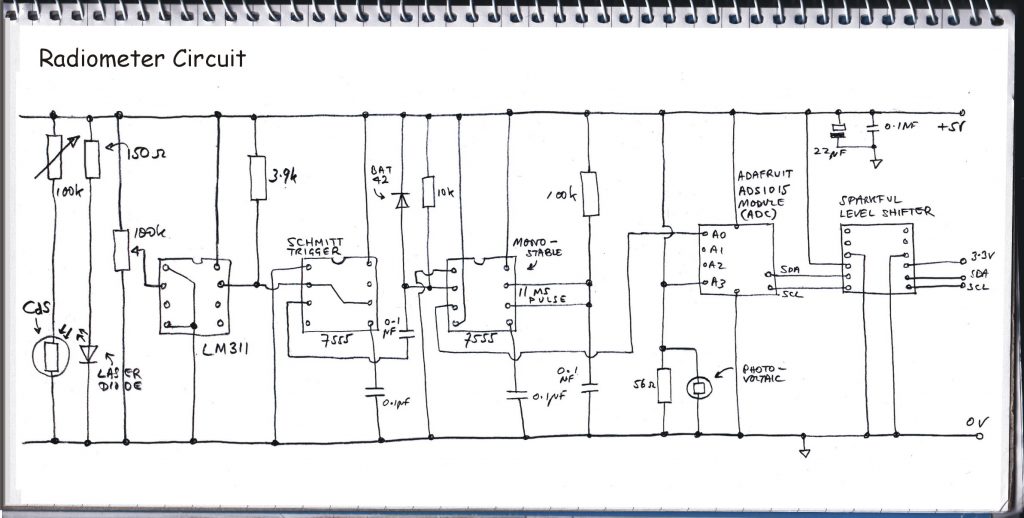 Radiometer Circuit
150Ω
100k
100k
CdS
LASER
DIODE
LM311
3.9k
SCHMITT
TRIGGER
7555
0.1
µF
0.1µF
BAT
42
10k
MONO-
STABLE
11 MS
PULSE
7555
0.1µF
100k
0.1
µF
56Ω
PHOTO-
VOLTAIC
ADAFRUIT
ADS1015
MODULE
(ADC)
A0
A1
A2
A3
SDA
SCL
22µF
0.1µF
+5V
SPARKFUL
LEVEL SHIFTER
3.3V
SDA
SCL
0V